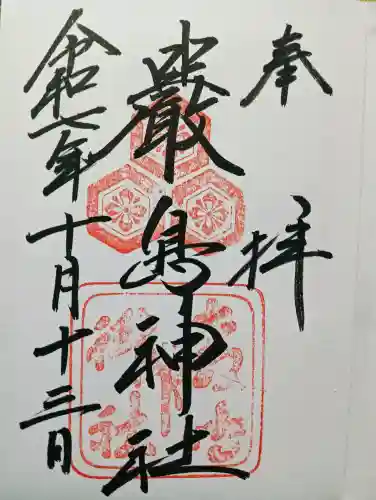 奉拝
嚴島神社
令和七年十月十三日
嚴島神社